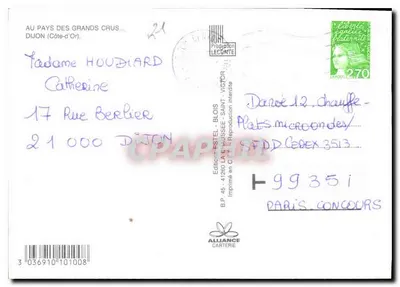 AU PAYS DES GRANDS CRUS...
DIJON (Côte-d'Or).
21
Madame HOUDIARD
Catherine
17 Rue Berbier
21 000 DIJON
LECONTE
Editions ESTEL - BLOIS
B.P. 45 - 41260 LA CHAUSSEE-SAINT-VICTOR
Imprimé en Reproduction interdite
2,70
12 chauffe-
Plats microondes/
CEDEX 3513
T 99351
PARIS CONCOURS
CPAPHIL
ALLIANCE
CARTERIE
3 036910 101008